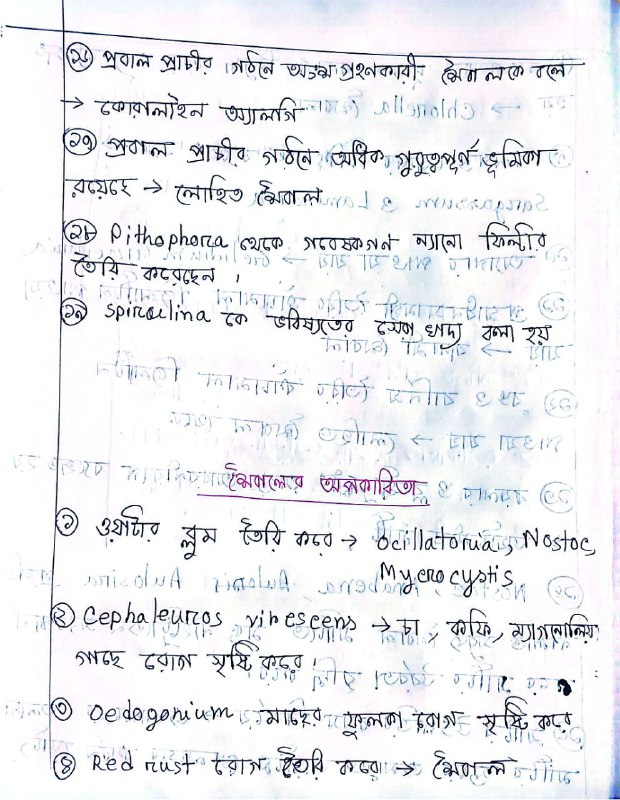 ২৬ প্রবাল প্রাচীর গঠনে অংশগ্রহণকারী শৈবালকে বলে
→ কোরালাইন অ্যালগি
২৭ প্রবাল প্রাচীর গঠনে অধিক গুরুত্বপূর্ণ ভূমিকা
রয়েছে → লোহিত শৈবাল
২৮ Pithophora থেকে গবেষকগন ন্যানো ফিল্টার
তৈরি করেছেন।
২৯ Spirulina কে ভবিষ্যতের সেরা খাদ্য বলা হয়
শৈবালের অপকারিতা
১ ওয়াটার ব্লুম তৈরি করে → Ocillatoria, Nostoc,
Mycrocystis
২ Cephaleuros virescens → চা, কফি, ম্যাগনোলিয়া
গাছে রোগ সৃষ্টি করে।
৩ Oedogonium মাছের ফুলকা রোগ সৃষ্টি করে
৪ Red rust রোগ তৈরি করে → শৈবাল